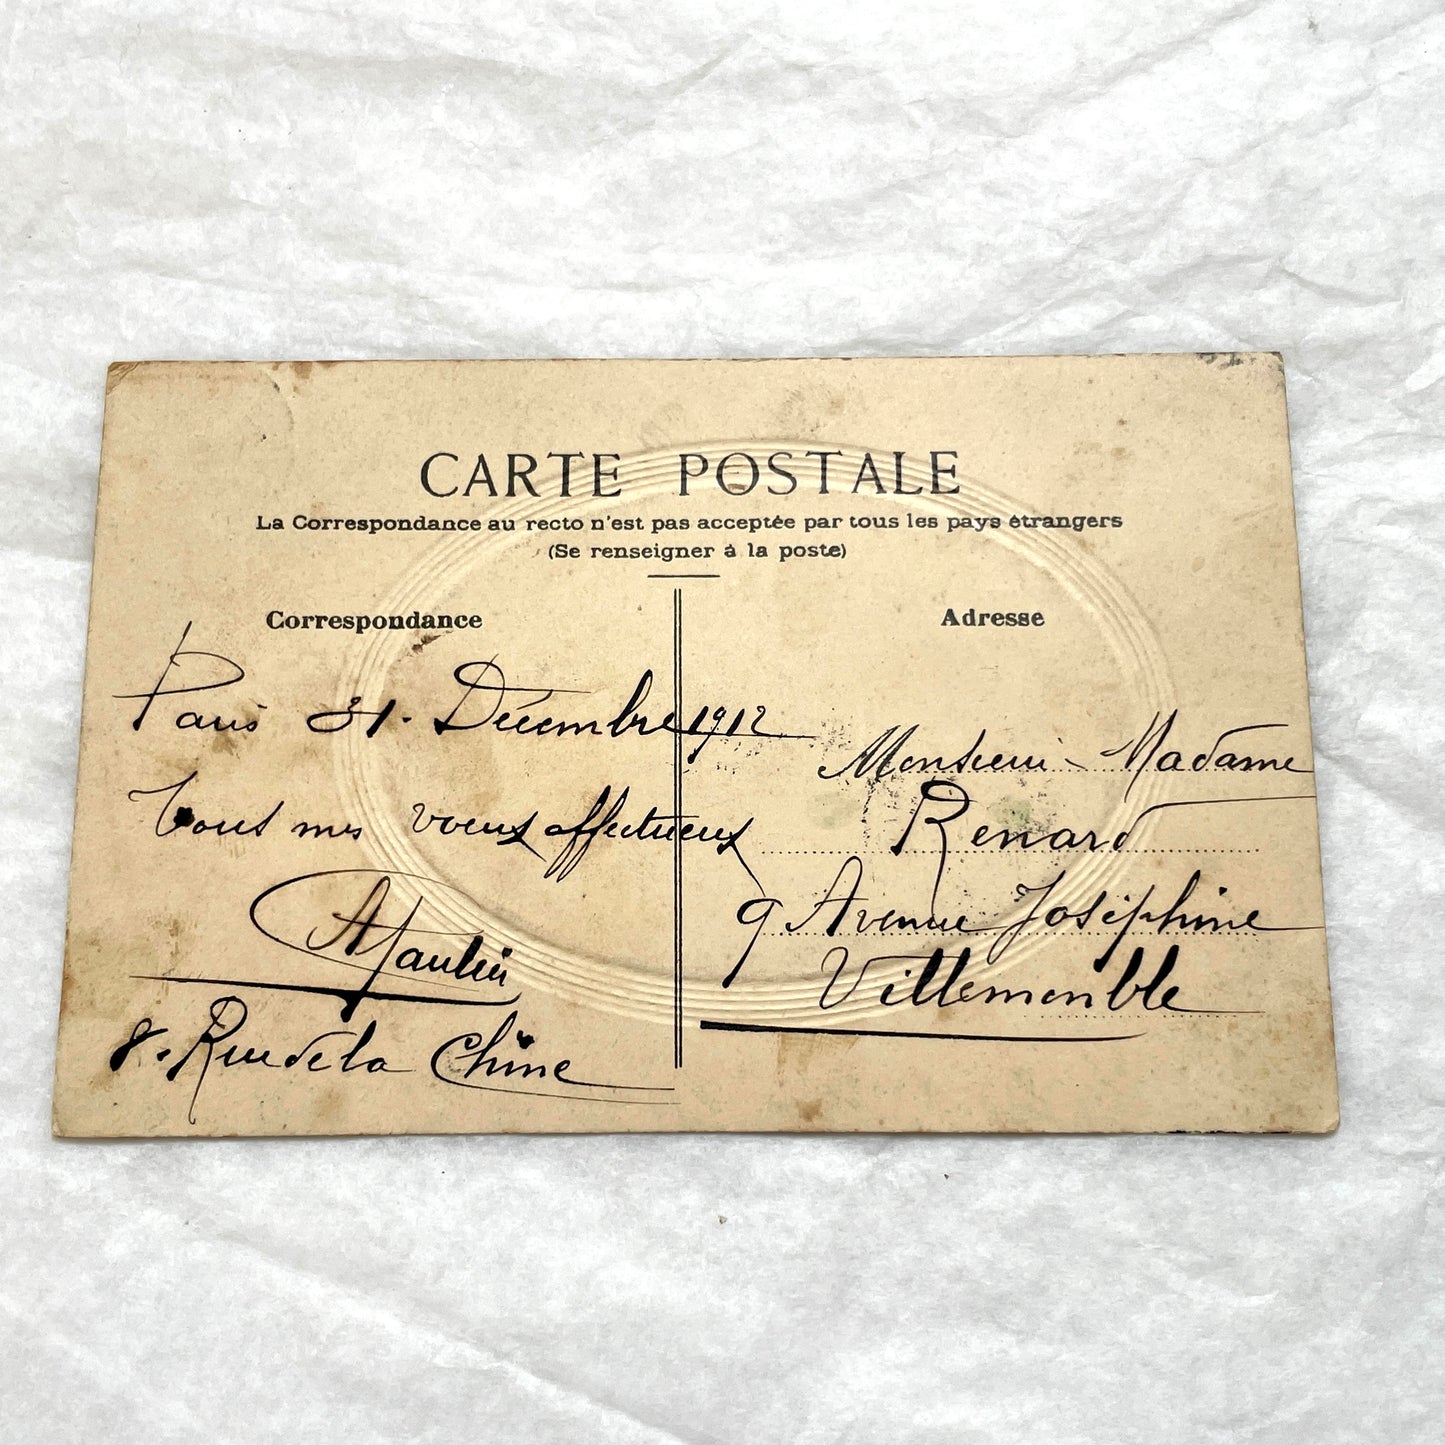 CARTE POSTALE
La Correspondance au recto n'est pas acceptée par tous les pays étrangers
(Se renseigner à la poste)
Correspondance
Paris 31. Décembre 1912
Tous mes voeux affectueux
8. Rue de la Chine
Adresse
Monsieur - Madame
Renard
9 Avenue Joséphine
Villemomble